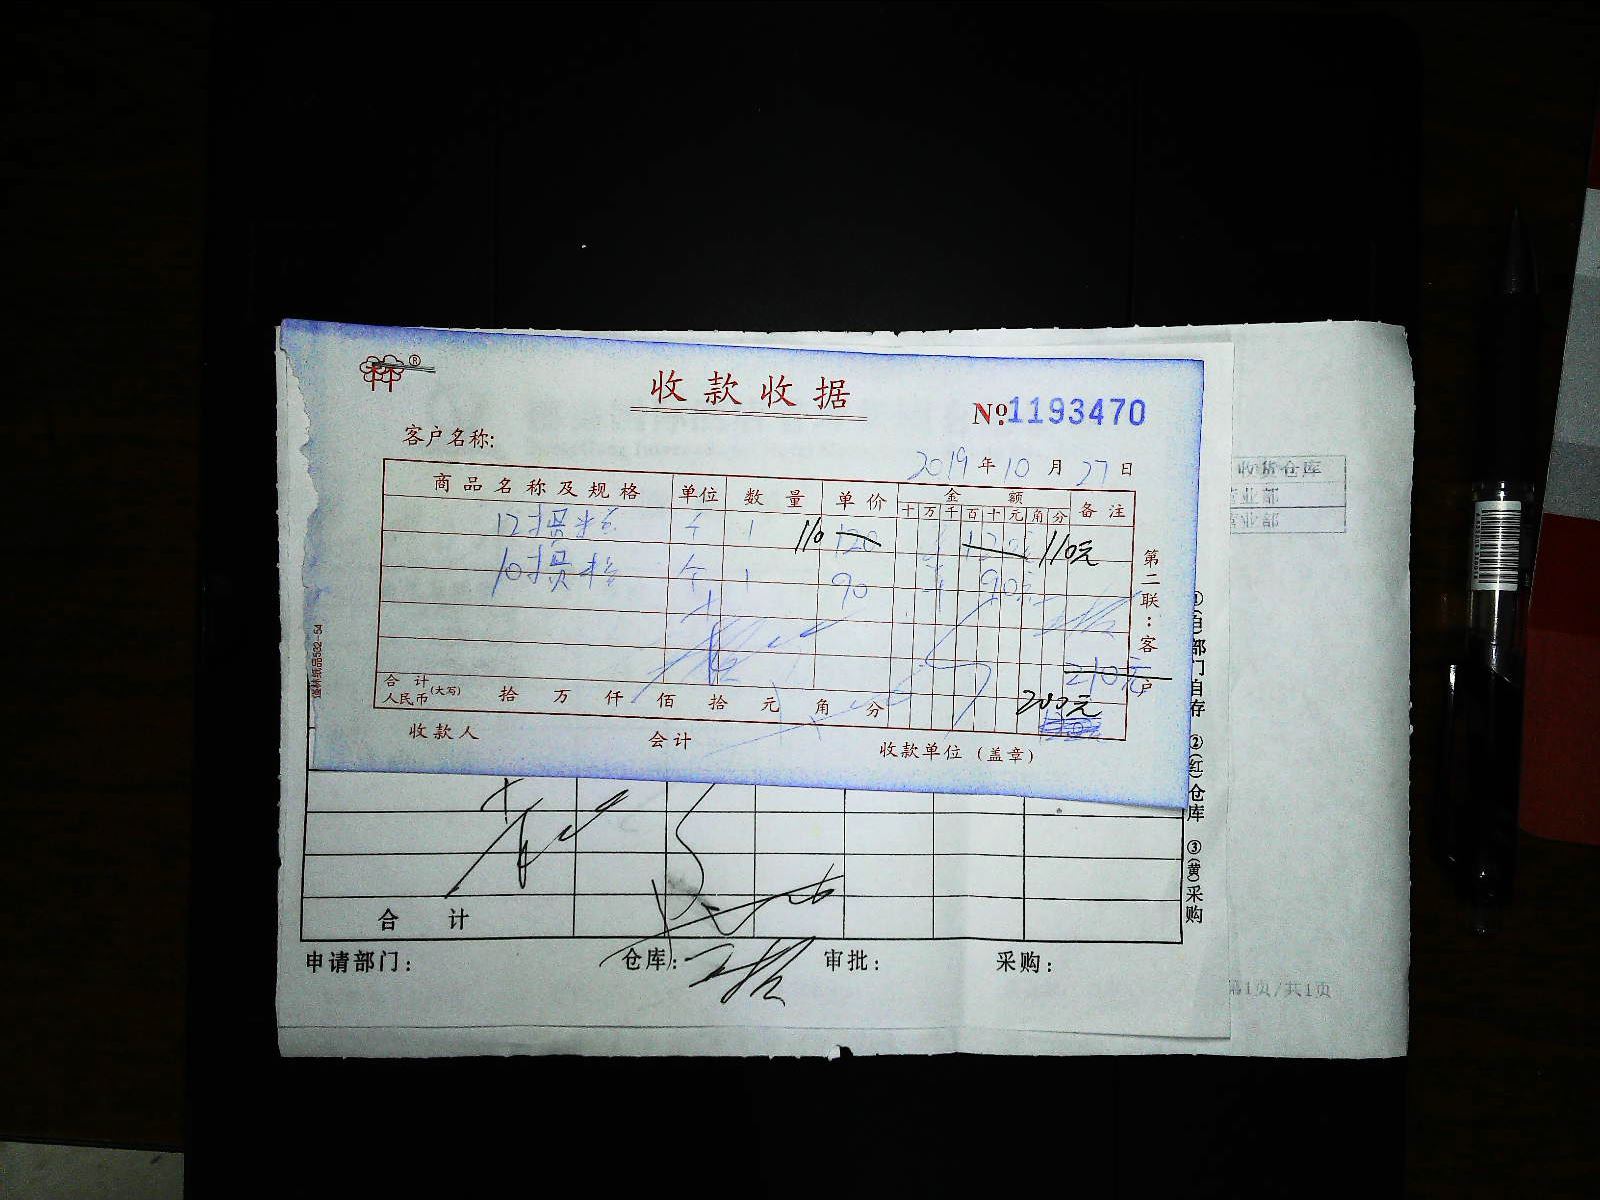 林®
收款收据
№1193470
客户名称:
2019年10月27日
商品名称及规格 单位 数量 单价 金额 备注
十 万 千 百 十 元 角 分
12 个 1 110 120 120 110元
10 个 1 90 90
210元
合计
人民币(大写) 拾 万 仟 佰 拾 元 角 分 200元
收款人 会计 收款单位(盖章)
第二联:客户
合计
申请部门: 仓库: 审批: 采购:
①(白)部门自存 ②(红)仓库 ③(黄)采购
收货仓库
营业部
营业部
第1页/共1页